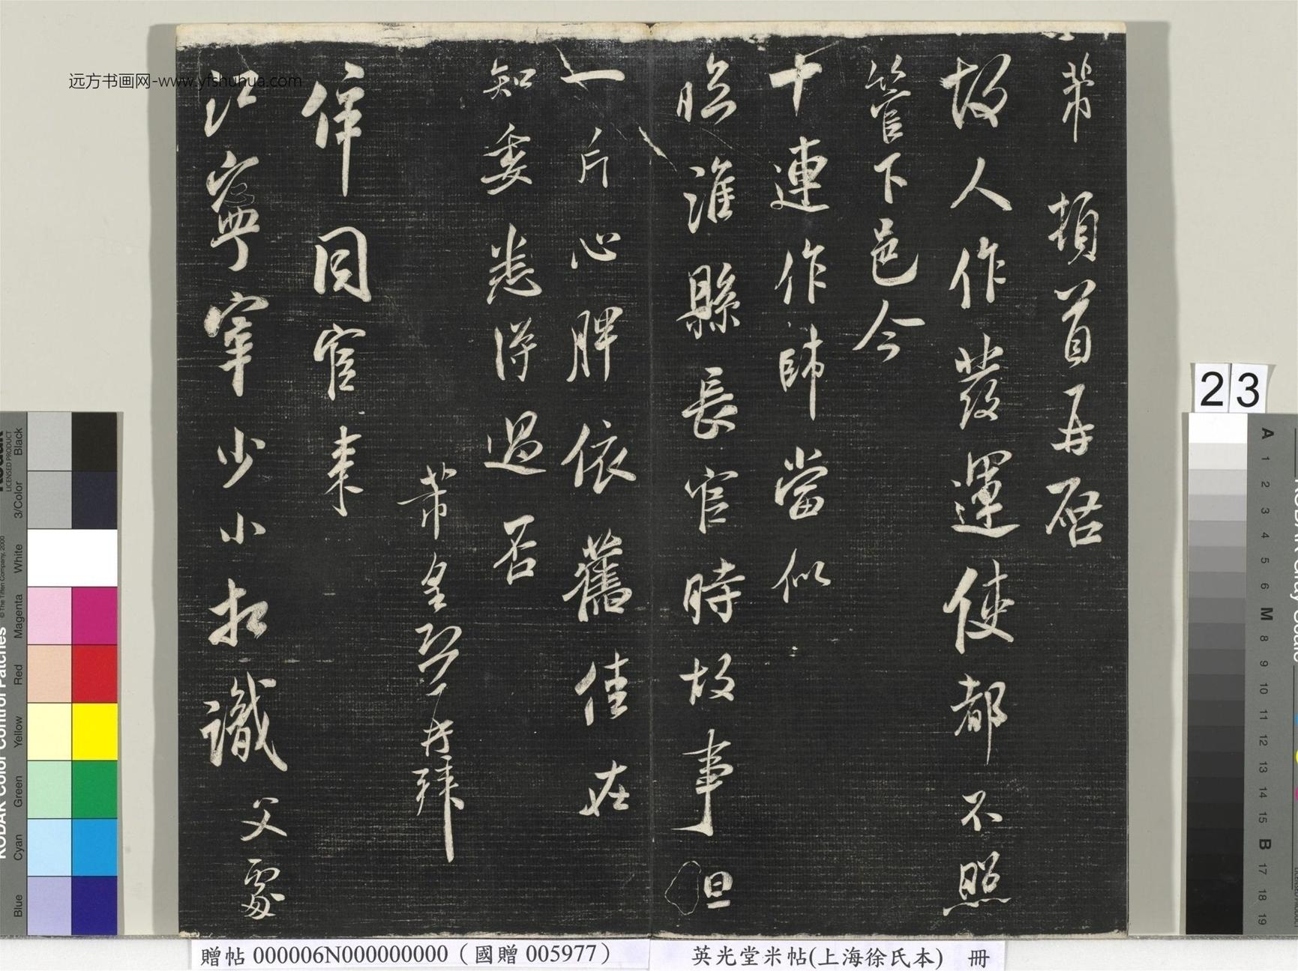 芾頓首再啓
故人作發運使都不照
管下邑今
十連作帥當似
臨淮縣長官時故事但
一片心脾依舊佳在
知委悉得過否
芾皇恐再拜
倅同官來
江寧宰少小相識
父處
远方书画网-www.yfshuhua.com
23
贈帖 000006N000000000（國贈 005977）
英光堂米帖(上海徐氏本) 冊
KODAK Color Control Patches
© The Tiffen Company, 2000
LICENSED PRODUCT
Blue
Cyan
Green
Yellow
Red
Magenta
White
3/Color
Black
A 1 2 3 4 5 6 M 8 9 10 11 12 13 14 15 B 17 18 19